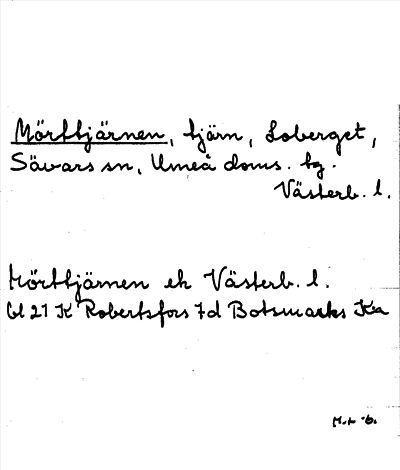 Mörttjärnen, tjärn, Loberget,
Sävars sn, Umeå doms. tg.
Västerb. l.
Mörttjärnen ek Västerb. l.
bl 21 K Robertsfors 7d Botsmarks Ka